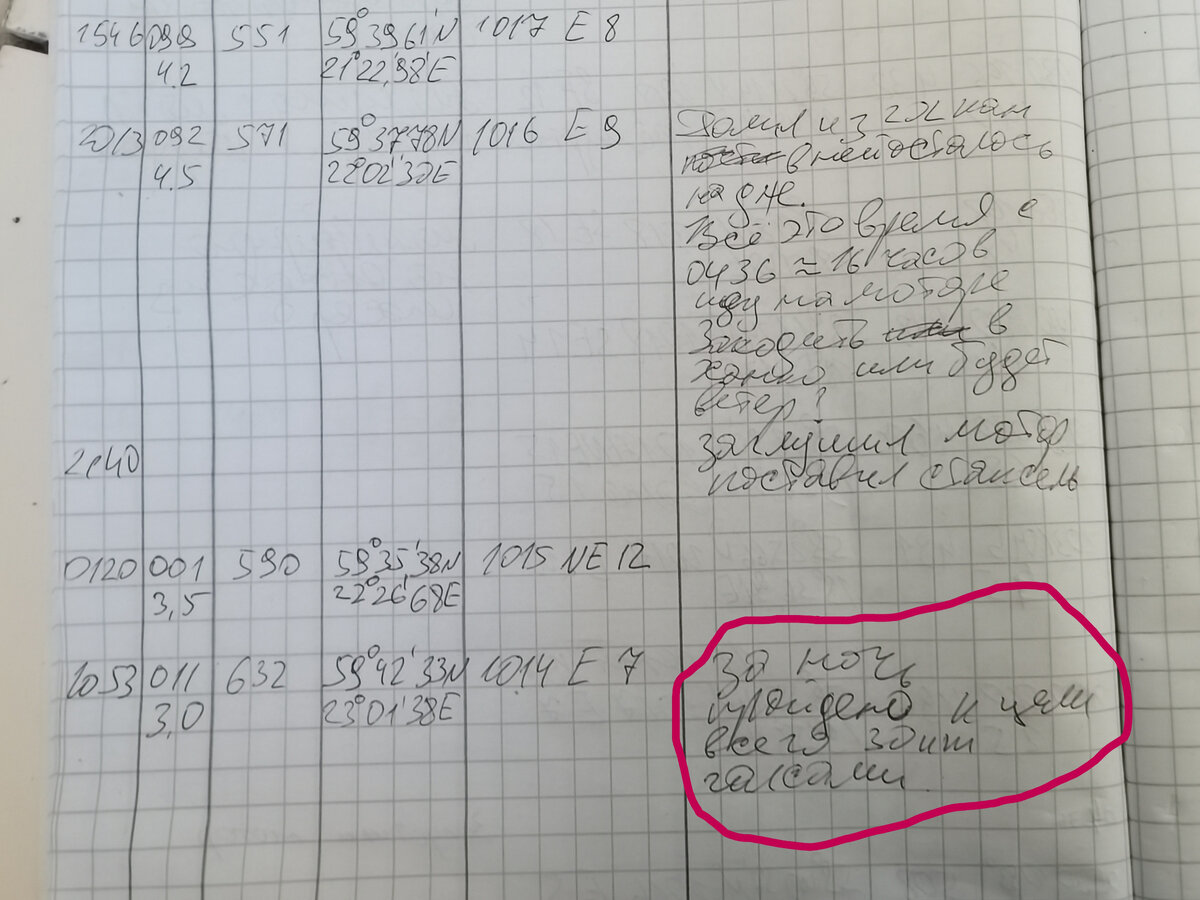 1546 098 551 59°39'61'N 1017 E 8
4.2 21°22,'98'E
2013 092 571 59°37'78N 1016 E 9
4.5 22°02'30E
Долил из 2х кан
в ней осталось
на дне.
Всё это время с
0436 ≈ 16 часов
иду на моторе
Заходить в
Ханко или будет
ветер?
2140 заглушил мотор
поставил стаксель
0120 001 590 59°35'38N 1015 NE 12
3,5 22°26'68E
1053 011 632 59°42'33N 1014 E 7
3,0 23°01'38E
За ночь
пройдено к цели
всего 30 миль
галсами